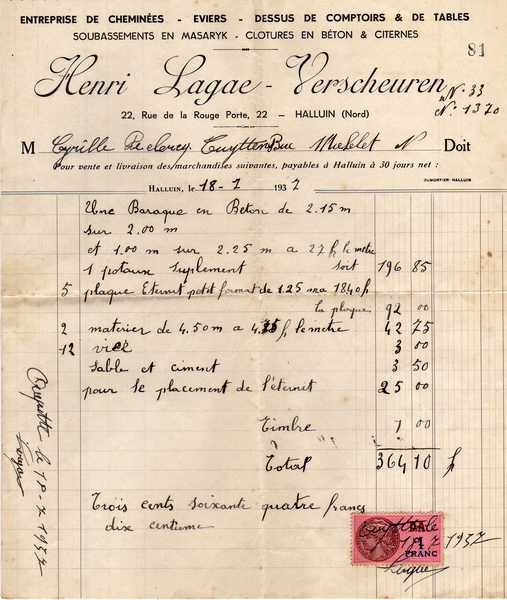 ENTREPRISE DE CHEMINÉES - EVIERS - DESSUS DE COMPTOIRS & DE TABLES
SOUBASSEMENTS EN MASARYK - CLOTURES EN BÉTON & CITERNES
81
Henri Lagae - Verscheuren
N° 33
N° 1370
22, Rue de la Rouge Porte, 22 - HALLUIN (Nord)
M Cyrille Declercq Rue N Doit
Pour vente et livraison des marchandises suivantes, payables à Halluin à 30 jours net :
DUMORTIER-HALLUIN
HALLUIN, le 18-7 1937
Une Baraque en Béton de 2.15 m
sur 2.00 m
et 1.00 m sur 2.25 m a 27 f le metre
1 potaux suplement soit 196 85
5 plaque Eternit petit format de 1.25 m a 18.40 f
la plaque 92 00
2 materier de 4.50 m a 4.75 f le metre 42 75
12 3 00
Sable et ciment 3 50
pour le placement de l'éternit 25 00
Timbre 1 00
Total 364 10 f
Trois cents soixante quatre francs
dixe centieme
Acquitté le 18-7 1937
Lagae
1 FRANC
18 7 1937
Lagae